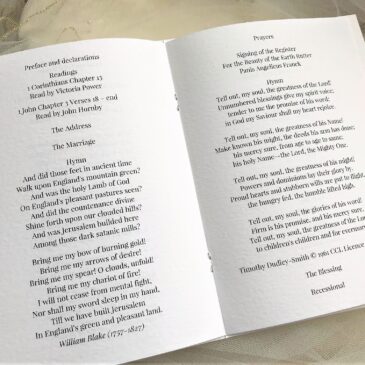 Preface and declarations
Readings
1 Corinthians Chapter 13
Read by Victoria Power
1 John Chapter 3 Verses 18 - end
Read by John Hornby
The Address
The Marriage
Hymn
And did those feet in ancient time
Walk upon England's mountain green?
And was the holy Lamb of God
On England's pleasant pastures seen?
And did the countenance divine
Shine forth upon our clouded hills?
And was Jerusalem builded here
Among those dark satanic mills?
Bring me my bow of burning gold!
Bring me my arrows of desire!
Bring me my spear! O clouds, unfold!
Bring me my chariot of fire!
I will not cease from mental fight,
Nor shall my sword sleep in my hand,
Till we have built Jerusalem
In England's green and pleasant land.
William Blake (1757-1827)
Prayers
Signing of the Register
For the Beauty of the Earth Rutter
Panis Angelicus Franck
Hymn
Tell out, my soul, the greatness of the Lord!
Unnumbered blessings give my spirit voice;
tender to me the promise of his word;
in God my Saviour shall my heart rejoice.
Tell out, my soul, the greatness of his Name!
Make known his might, the deeds his arm has done;
his mercy sure, from age to age to same;
his holy Name—the Lord, the Mighty One.
Tell out, my soul, the greatness of his might!
Powers and dominions lay their glory by,
Proud hearts and stubborn wills are put to flight,
the hungry fed, the humble lifted high.
Tell out, my soul, the glories of his word!
Firm is his promise, and his mercy sure.
Tell out, my soul, the greatness of the Lord
to children's children and for evermore
Timothy Dudley-Smith © 1961 CCL Licence
The Blessing
Recessional